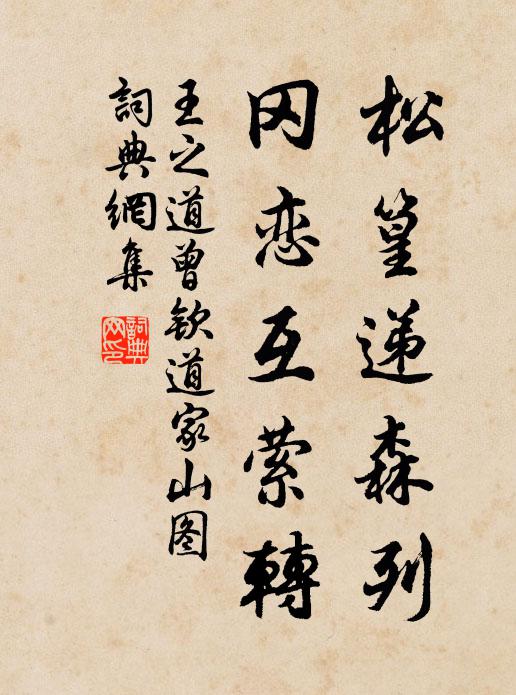 松篁递森列
冈恋互萦轉
王之道曾钦道家山图
詞典網集
詞典網印